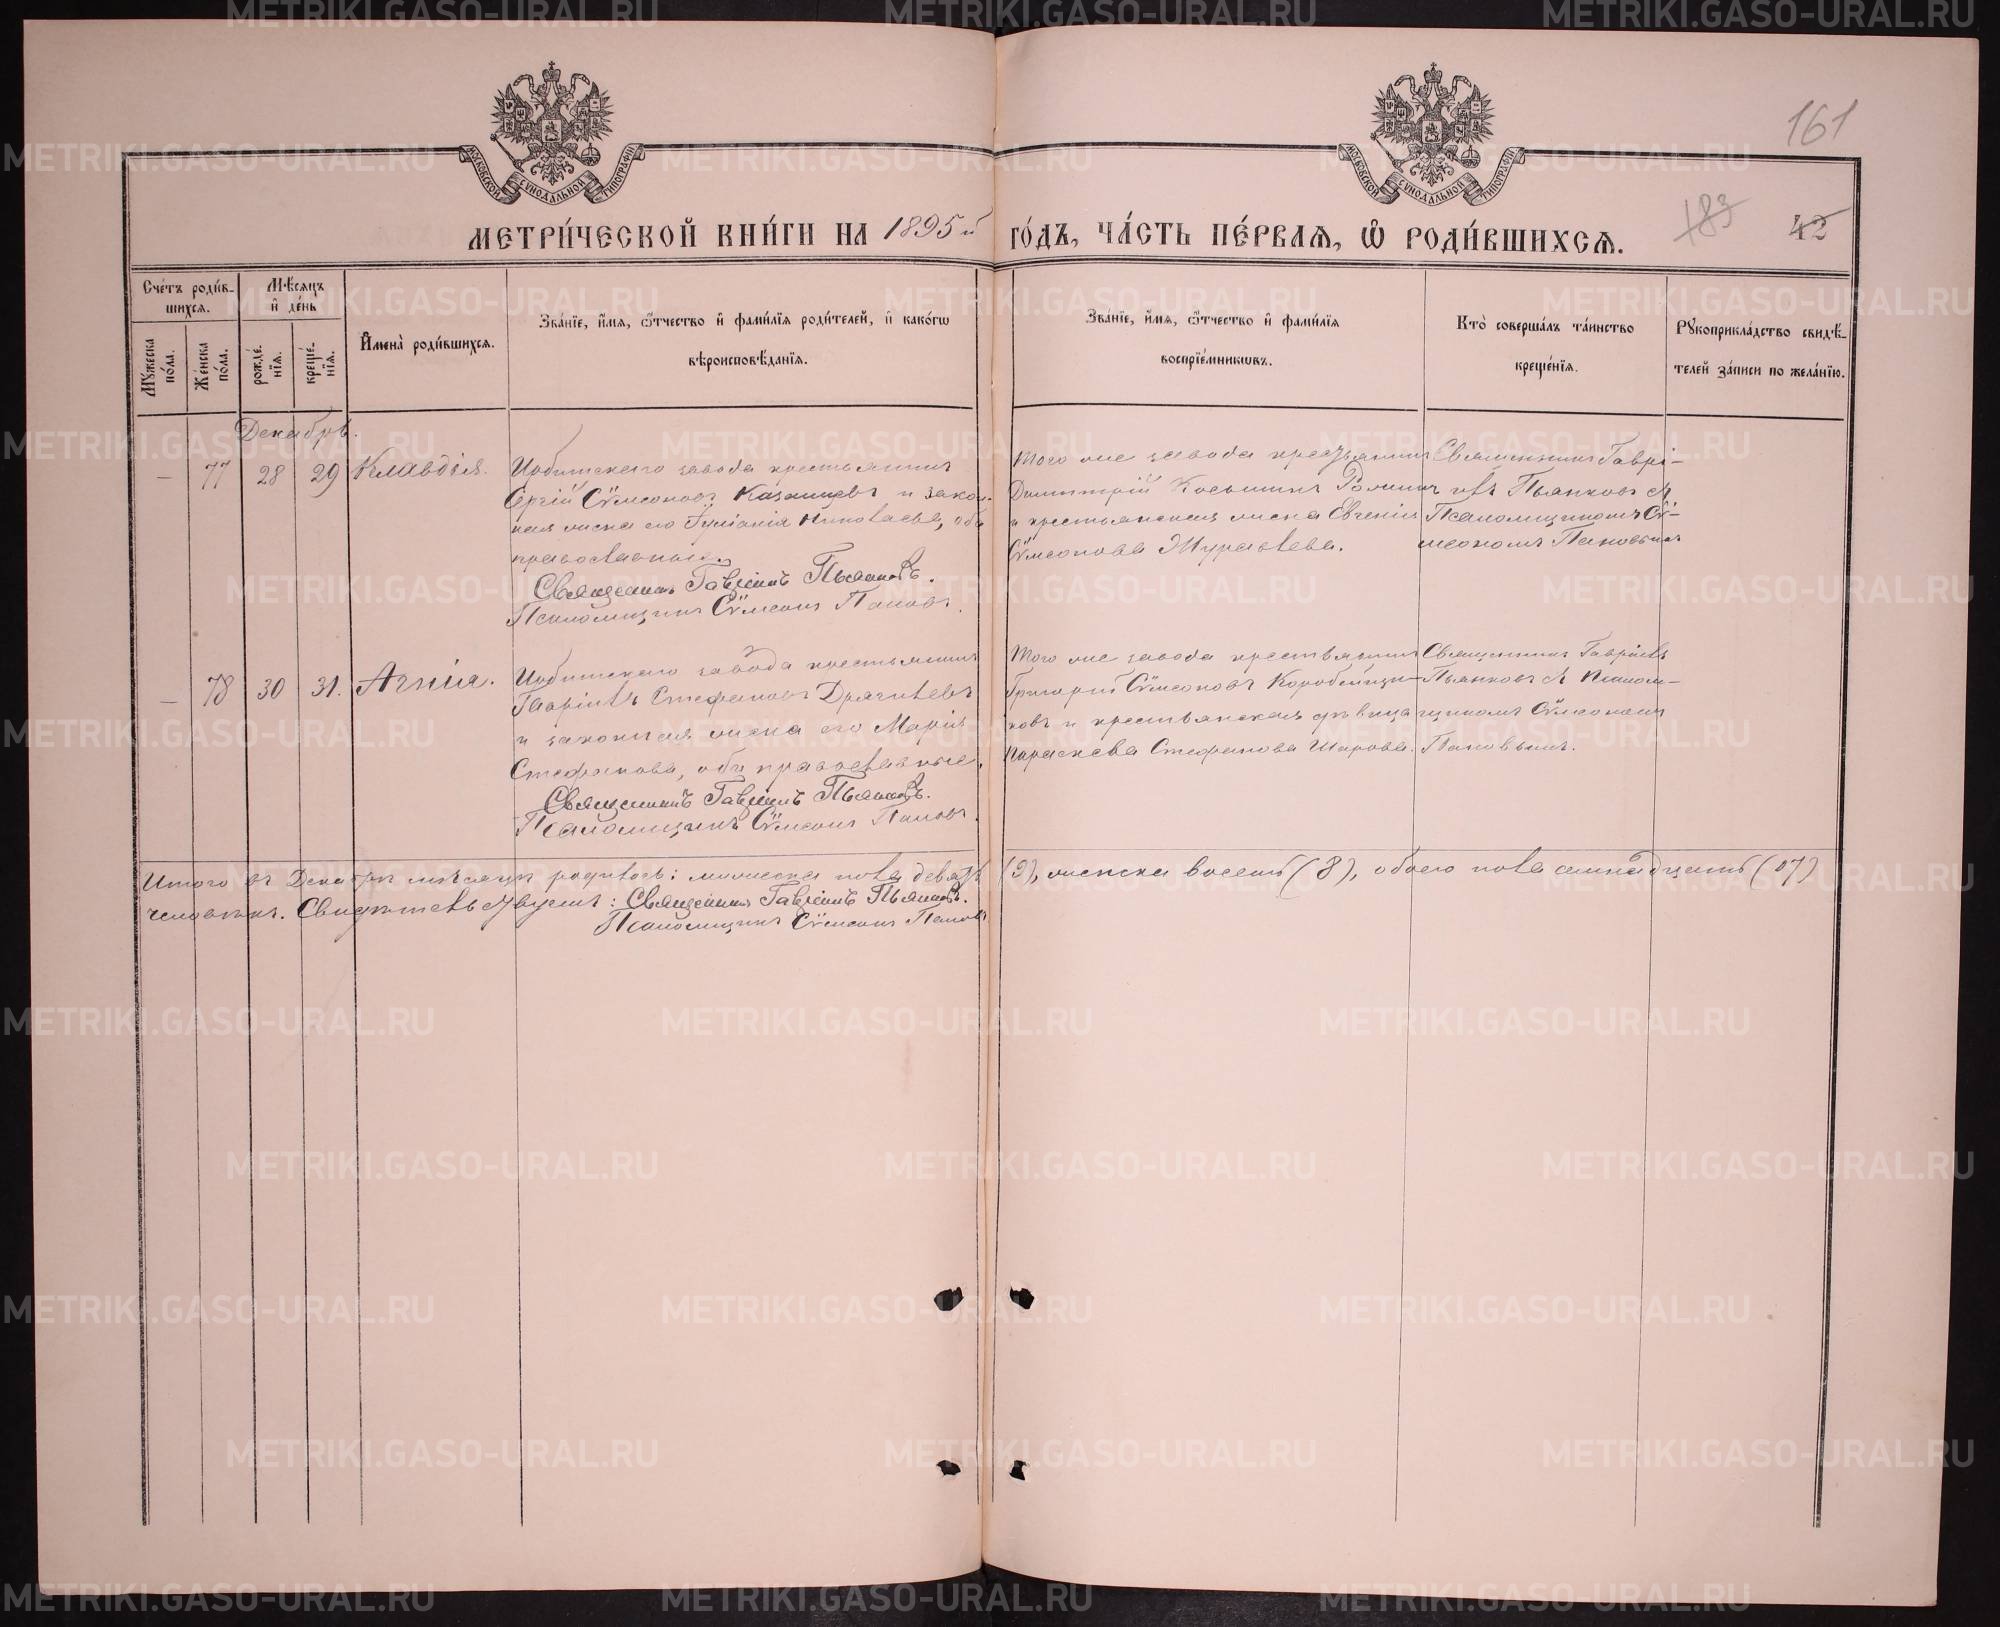 МОСКОВСКОЙ СѴНОДАЛЬНОЙ ТИПОГРАФІИ
МОСКОВСКОЙ СѴНОДАЛЬНОЙ ТИПОГРАФІИ
161
183
42
МЕТРИ́ЧЕСКОЙ КНИ́ГИ НА 1895й ГО́ДЪ, ЧА́СТЬ ПЕ́РВАЯ, Ѽ РОДИ́ВШИХСЯ.
Сче́тъ роди́в-
шихся.
Мѣсяцъ
и де́нь
Мꙋжеска по́ла.
Же́нска по́ла.
рожде́нїя.
креще́нїя.
Имена̀ роди́вшихся.
Зва́нїе, и́мя, ѻ҆́тчество и фами́лїя роди́телей, и како́гѡ
вѣроисповѣ́данїя.
Зва́нїе, и́мя, ѻ҆́тчество и фами́лїя
воспрїе́мникѡвъ.
Кто̀ соверша́лъ та́инство
креще́нїя.
Рꙋкоприкла́дство свидѣ́-
телей за́писи по жела́нїю.
Декабрь.
— 77 28 29 Клавдія.
завода крестьянинъ
Сергій Сѵмеоновъ Казанцевъ и закон-
ная жена его Николаева, оба
православные.
Священникъ Гавріилъ Пьянковъ.
Псаломщикъ Сѵмеонъ Пановъ.
Того же завода крестьянинъ
Димитрій Косьминъ
и крестьянская жена Евгенія
Сѵмеонова Журавлева.
Священникъ Гаврі-
илъ Пьянковъ съ
Псаломщикомъ Сѵ-
меономъ Пановымъ
— 78 30 31. Агнія.
завода крестьянинъ
Гавріилъ Стефановъ Драчилевъ
и законная жена его Марія
Стефанова, оба православные.
Священникъ Гавріилъ Пьянковъ.
Псаломщикъ Сѵмеонъ Пановъ.
Того же завода крестьянинъ
Григорій Сѵмеоновъ Коробейщи-
ковъ и крестьянская дѣвица
Параскева Стефанова Шарова.
Священникъ Гавріилъ
Пьянковъ съ Псалом-
щикомъ Сѵмеономъ
Пановымъ.
Итого въ Декабрѣ мѣсяцѣ родилось: мужеска пола девять (9), женска восемь (8), обоего пола семнадцать (17)
человѣкъ. : Священникъ Гавріилъ Пьянковъ.
Псаломщикъ Сѵмеонъ Пановъ
METRIKI.GASO-URAL.RU